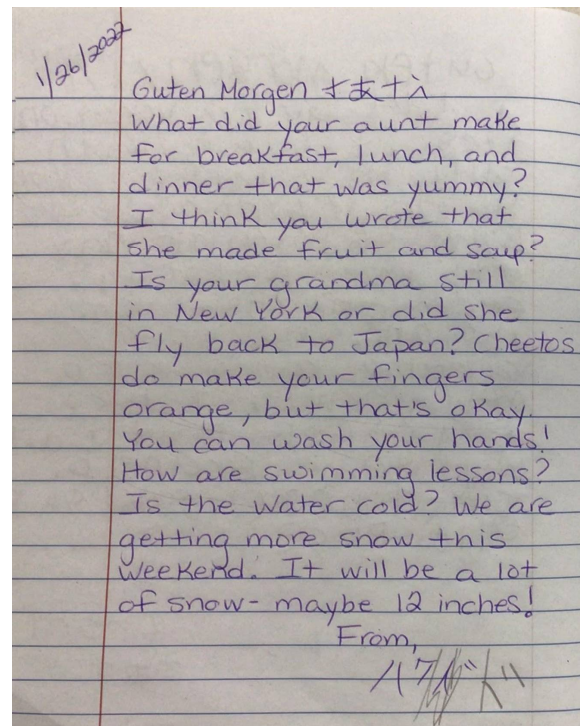 1/26/2022
Guten Morgen
What did your aunt make
for breakfast, lunch, and
dinner that was yummy?
I think you wrote that
she made fruit and soup?
Is your grandma still
in New York or did she
fly back to Japan? Cheetos
do make your fingers
orange, but that's okay.
You can wash your hands!
How are swimming lessons?
Is the water cold? We are
getting more snow this
weekend. It will be a lot
of snow- maybe 12 inches!
From,